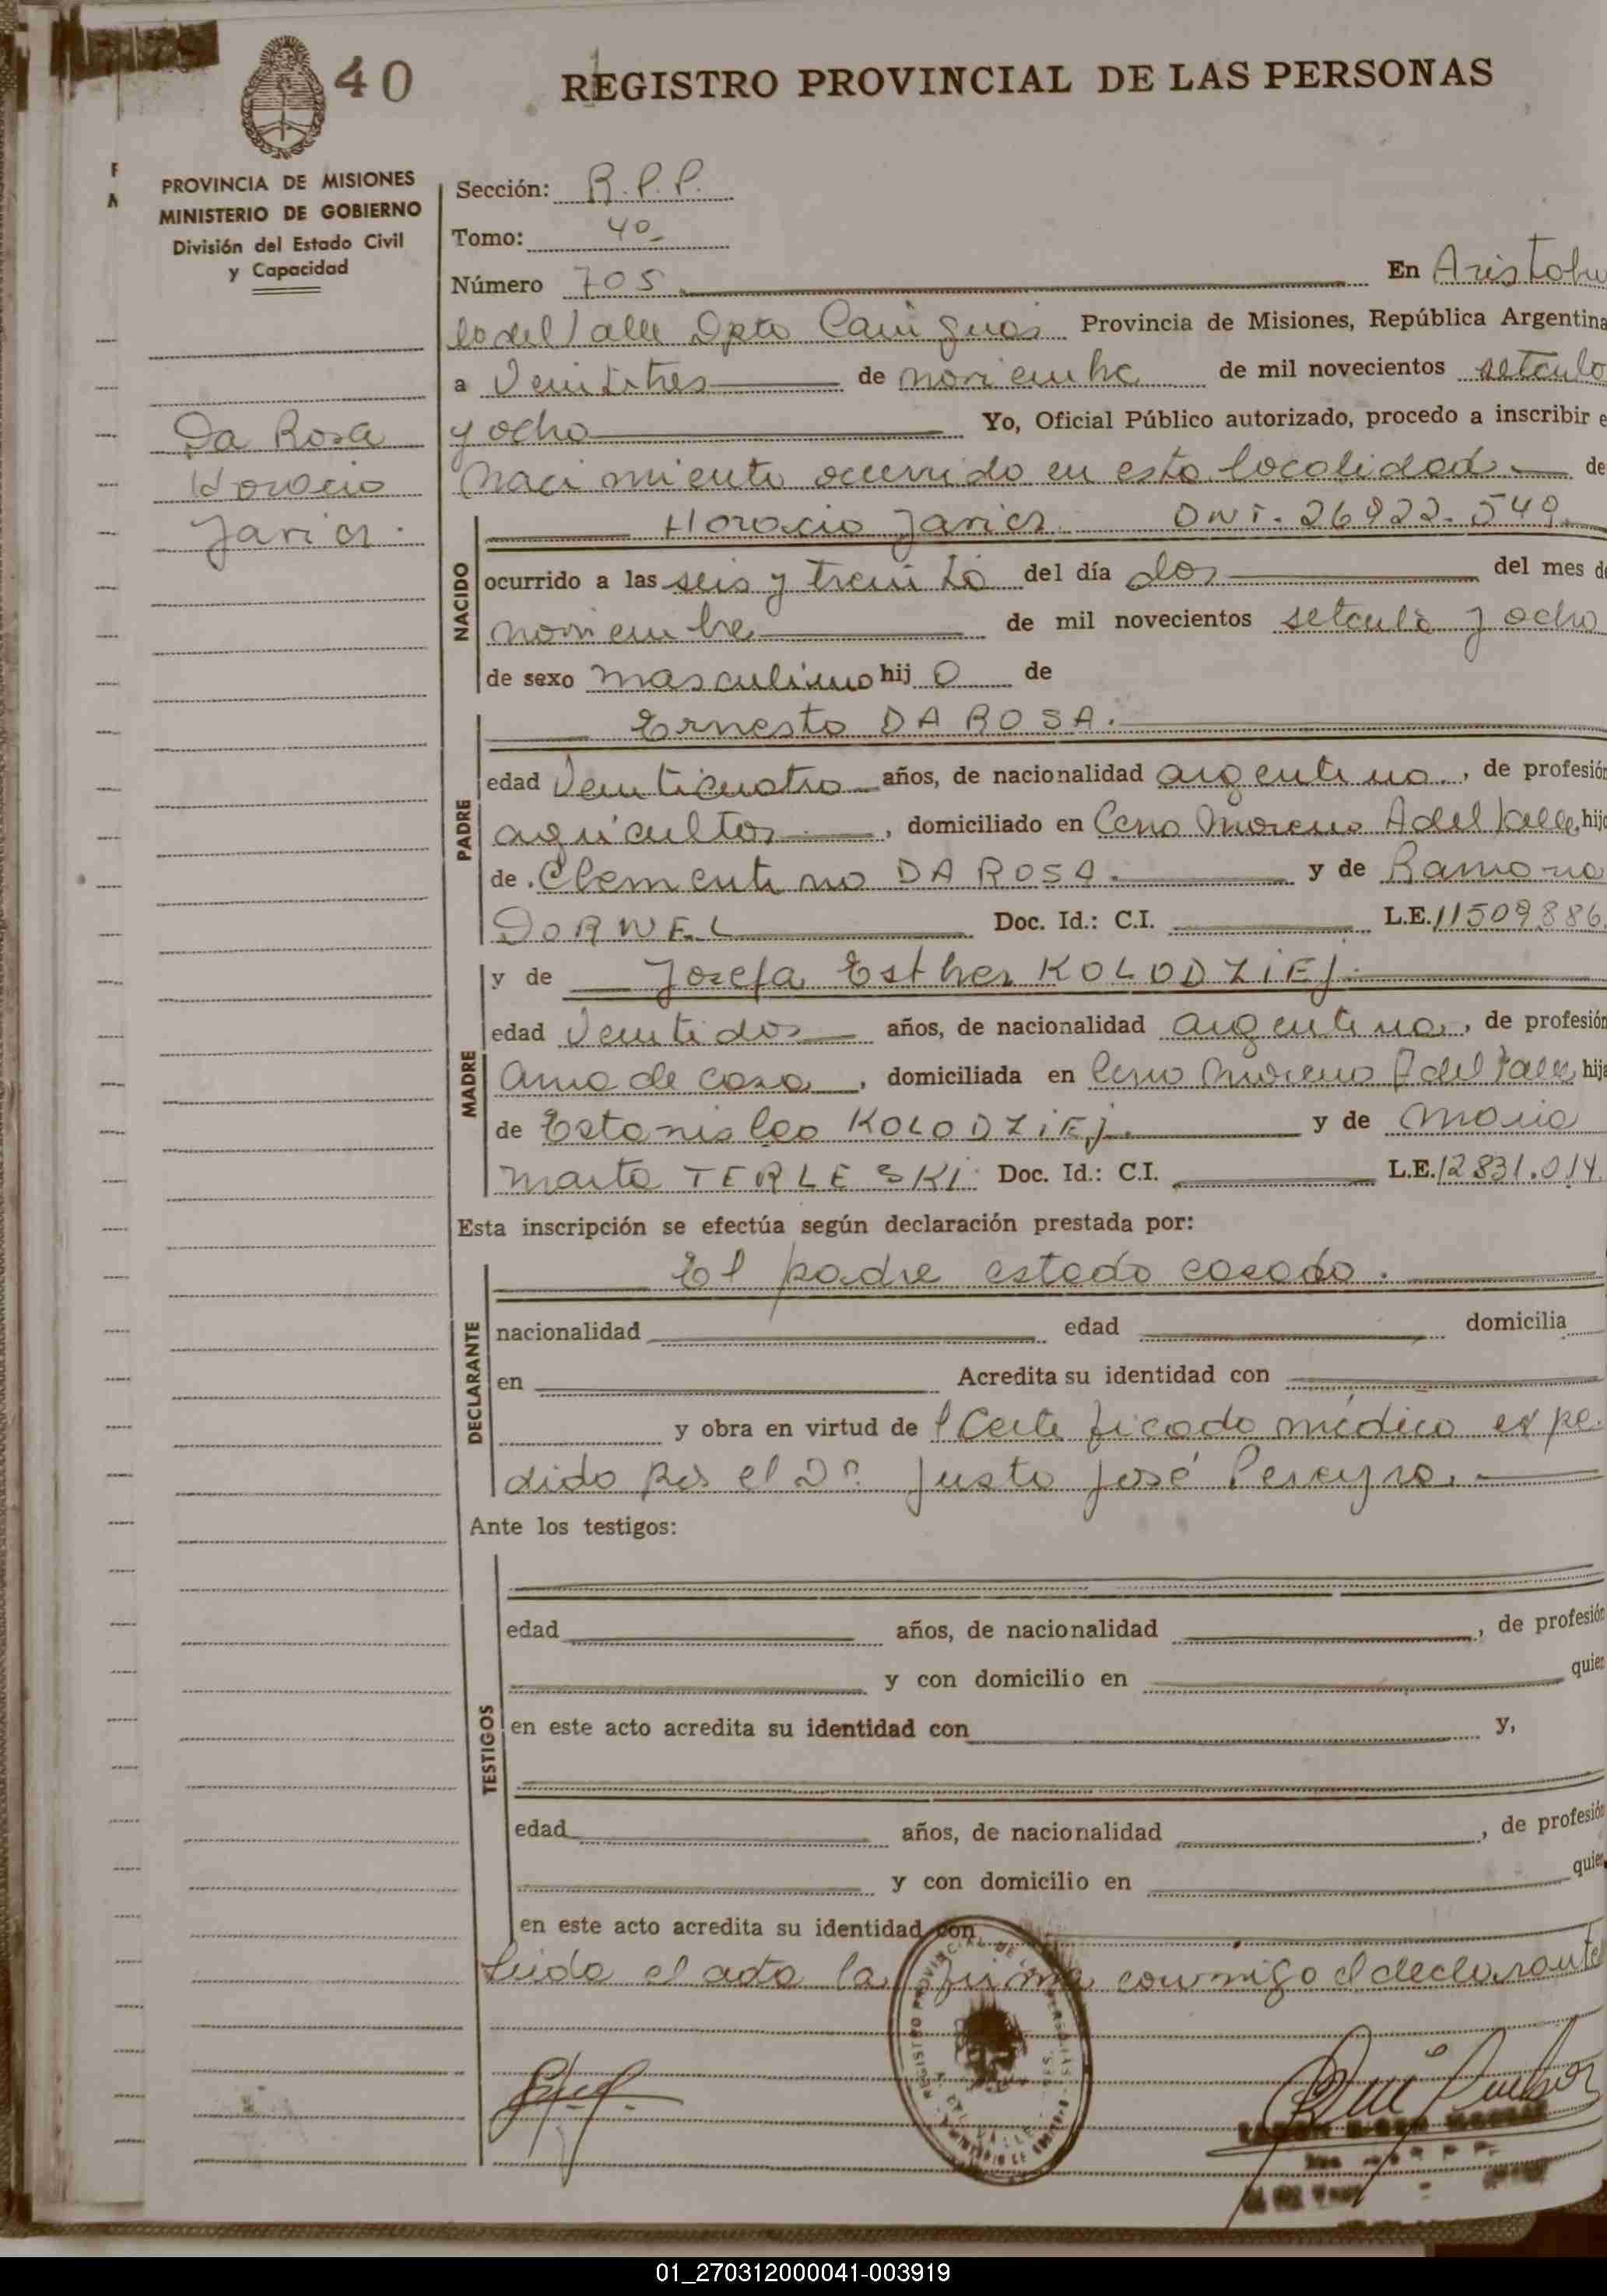 40
REGISTRO PROVINCIAL DE LAS PERSONAS
PROVINCIA DE MISIONES
MINISTERIO DE GOBIERNO
División del Estado Civil
y Capacidad
Da Rosa
Horacio
Javier.
Sección: R.P.P.
Tomo: 40
Número 705 En Aristobu
lo del Valle Dpto Cainguas Provincia de Misiones, República Argentina
a Veintitres de noviembre de mil novecientos setenta
y ocho Yo, Oficial Público autorizado, procedo a inscribir e
Nacimiento ocurrido en esta localidad de
NACIDO
Horacio Javier DNI. 26822.549.
ocurrido a las seis y treinta del día dos del mes de
noviembre de mil novecientos setenta y ocho
de sexo masculino hijo de
PADRE
Ernesto DA ROSA.
edad Veinticuatro años, de nacionalidad argentino, de profesión
agricultor, domiciliado en Cerro Moreno A del Valle, hijo
de Clementino DA ROSA. y de Ramona
DORNEL Doc. Id.: C.I. L.E. 11509886
MADRE
y de Josefa Esther KOLODZIEJ.
edad Veintidos años, de nacionalidad argentina, de profesión
ama de casa, domiciliada en Cerro Moreno A del Valle, hija
de Estanislao KOLODZIEJ. y de Maria
Marta TERLESKI Doc. Id.: C.I. L.E. 12831.014.
Esta inscripción se efectúa según declaración prestada por:
DECLARANTE
El padre estado casado.
nacionalidad edad domicilia
en Acredita su identidad con
y obra en virtud de Certificado médico expe
dido por el Dr. Justo José Pereyra.
Ante los testigos:
TESTIGOS
edad años, de nacionalidad , de profesión
y con domicilio en quien
en este acto acredita su identidad con y,
edad años, de nacionalidad , de profesión
y con domicilio en quien
en este acto acredita su identidad con
Leida el acta la firma conmigo el declarante
REGISTRO PROVINCIAL DE LAS PERSONAS
01_270312000041-003919